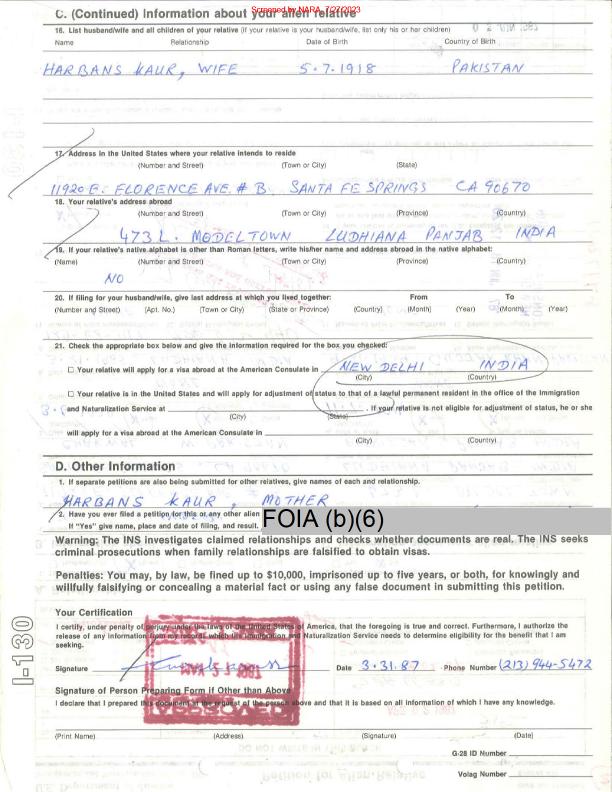 Screened by NARA, 7/27/2023
C. (Continued) Information about your alien relative
16. List husband/wife and all children of your relative (if your relative is your husband/wife, list only his or her children)
Name Relationship Date of Birth Country of Birth
HARBANS KAUR, WIFE 5.7.1918 PAKISTAN
17. Address in the United States where your relative intends to reside
(Number and Street) (Town or City) (State)
11920 E. FLORENCE AVE. # B SANTA FE SPRINGS CA 90670
18. Your relative's address abroad
(Number and Street) (Town or City) (Province) (Country)
473 L. MODEL TOWN LUDHIANA PANJAB INDIA
19. If your relative's native alphabet is other than Roman letters, write his/her name and address abroad in the native alphabet:
(Name) (Number and Street) (Town or City) (Province) (Country)
NO
20. If filing for your husband/wife, give last address at which you lived together: From To
(Number and Street) (Apt. No.) (Town or City) (State or Province) (Country) (Month) (Year) (Month) (Year)
21. Check the appropriate box below and give the information required for the box you checked:
☐ Your relative will apply for a visa abroad at the American Consulate in NEW DELHI INDIA
(City) (Country)
☐ Your relative is in the United States and will apply for adjustment of status to that of a lawful permanent resident in the office of the Immigration
and Naturalization Service at . If your relative is not eligible for adjustment of status, he or she
(City) (State)
will apply for a visa abroad at the American Consulate in
(City) (Country)
D. Other Information
1. If separate petitions are also being submitted for other relatives, give names of each and relationship.
HARBANS KAUR, MOTHER
2. Have you ever filed a petition for this or any other alien
If "Yes" give name, place and date of filing, and result.
FOIA (b)(6)
Warning: The INS investigates claimed relationships and checks whether documents are real. The INS seeks
criminal prosecutions when family relationships are falsified to obtain visas.
Penalties: You may, by law, be fined up to $10,000, imprisoned up to five years, or both, for knowingly and
willfully falsifying or concealing a material fact or using any false document in submitting this petition.
Your Certification
I certify, under penalty of perjury under the laws of the United States of America, that the foregoing is true and correct. Furthermore, I authorize the
release of any information from my records which the Immigration and Naturalization Service needs to determine eligibility for the benefit that I am
seeking.
Signature Date 3.31.87 Phone Number (213) 944-5472
Signature of Person Preparing Form if Other than Above
I declare that I prepared this document at the request of the person above and that it is based on all information of which I have any knowledge.
(Print Name) (Address) (Signature) (Date)
G-28 ID Number
Volag Number
I-130